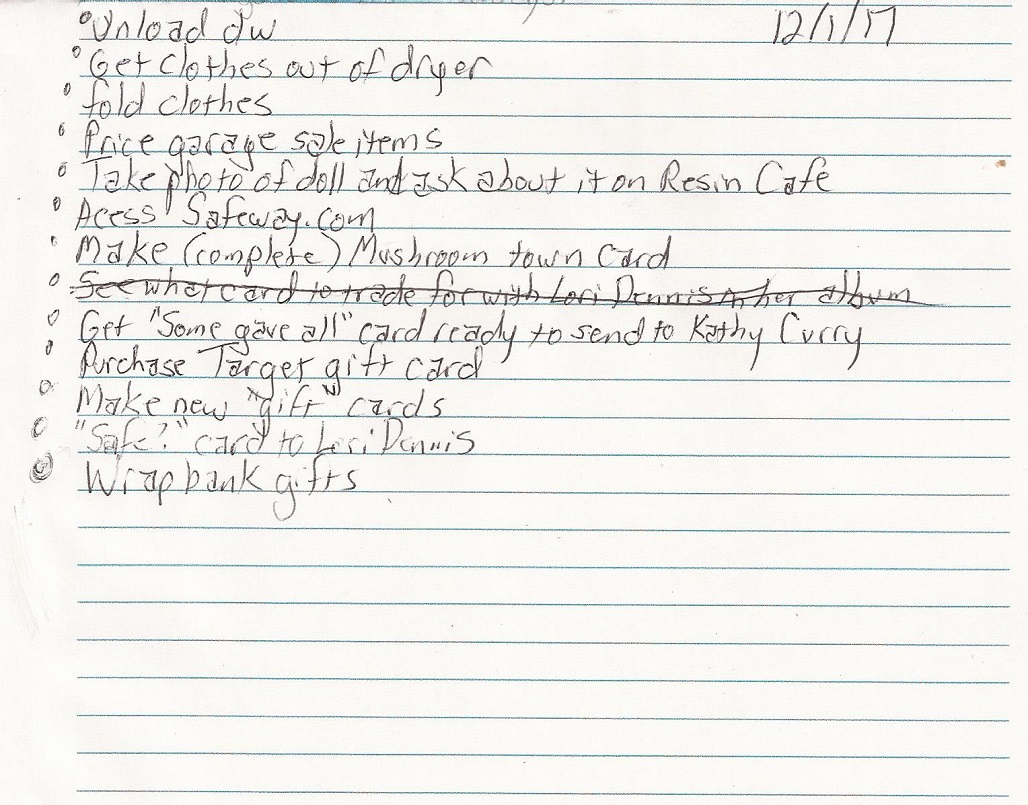 Unload dw 12/1/17
Get clothes out of dryer
fold clothes
Price garage sale items
Take photo of doll and ask about it on Resin Cafe
Acess Safeway.com
Make (complete) Mushroom town Card
See what card to trade for with Lori Dennis in her album
Get "Some gave all" card ready to send to Kathy Curry
Purchase Target gift card
Make new "gift" cards
"Safe?" card to Lori Dennis
Wrap bank gifts